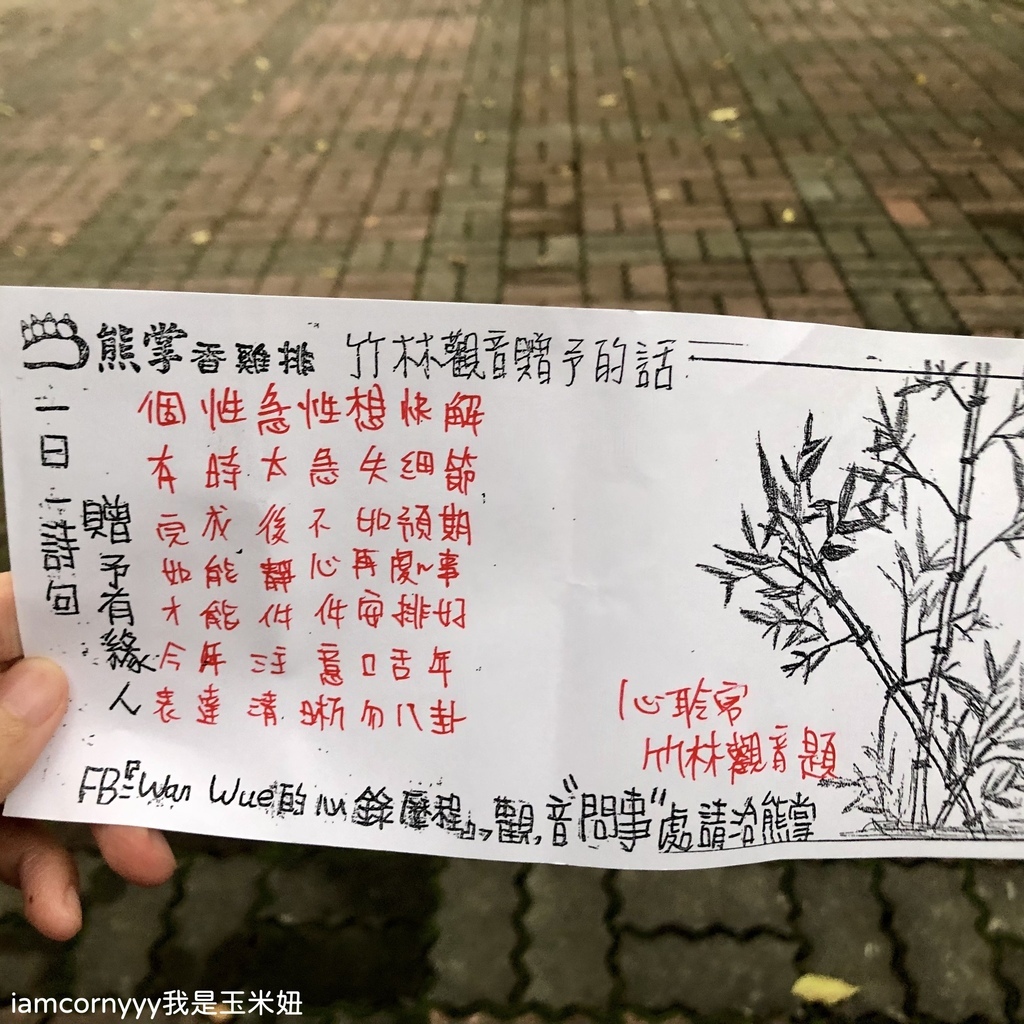 熊掌香雞排 竹林觀音贈予的話
一日一詩句
贈予有緣人
個性急性想快解
有時太急失細節
完成後不如預期
如能靜心再處事
才能件件安排好
今年注意口舌年
表達清晰勿八卦
心聆宮
竹林觀音題
FB『Wan Wue的心錄歷程』觀音"問事"處請洽熊掌
iamcornyyy我是玉米妞